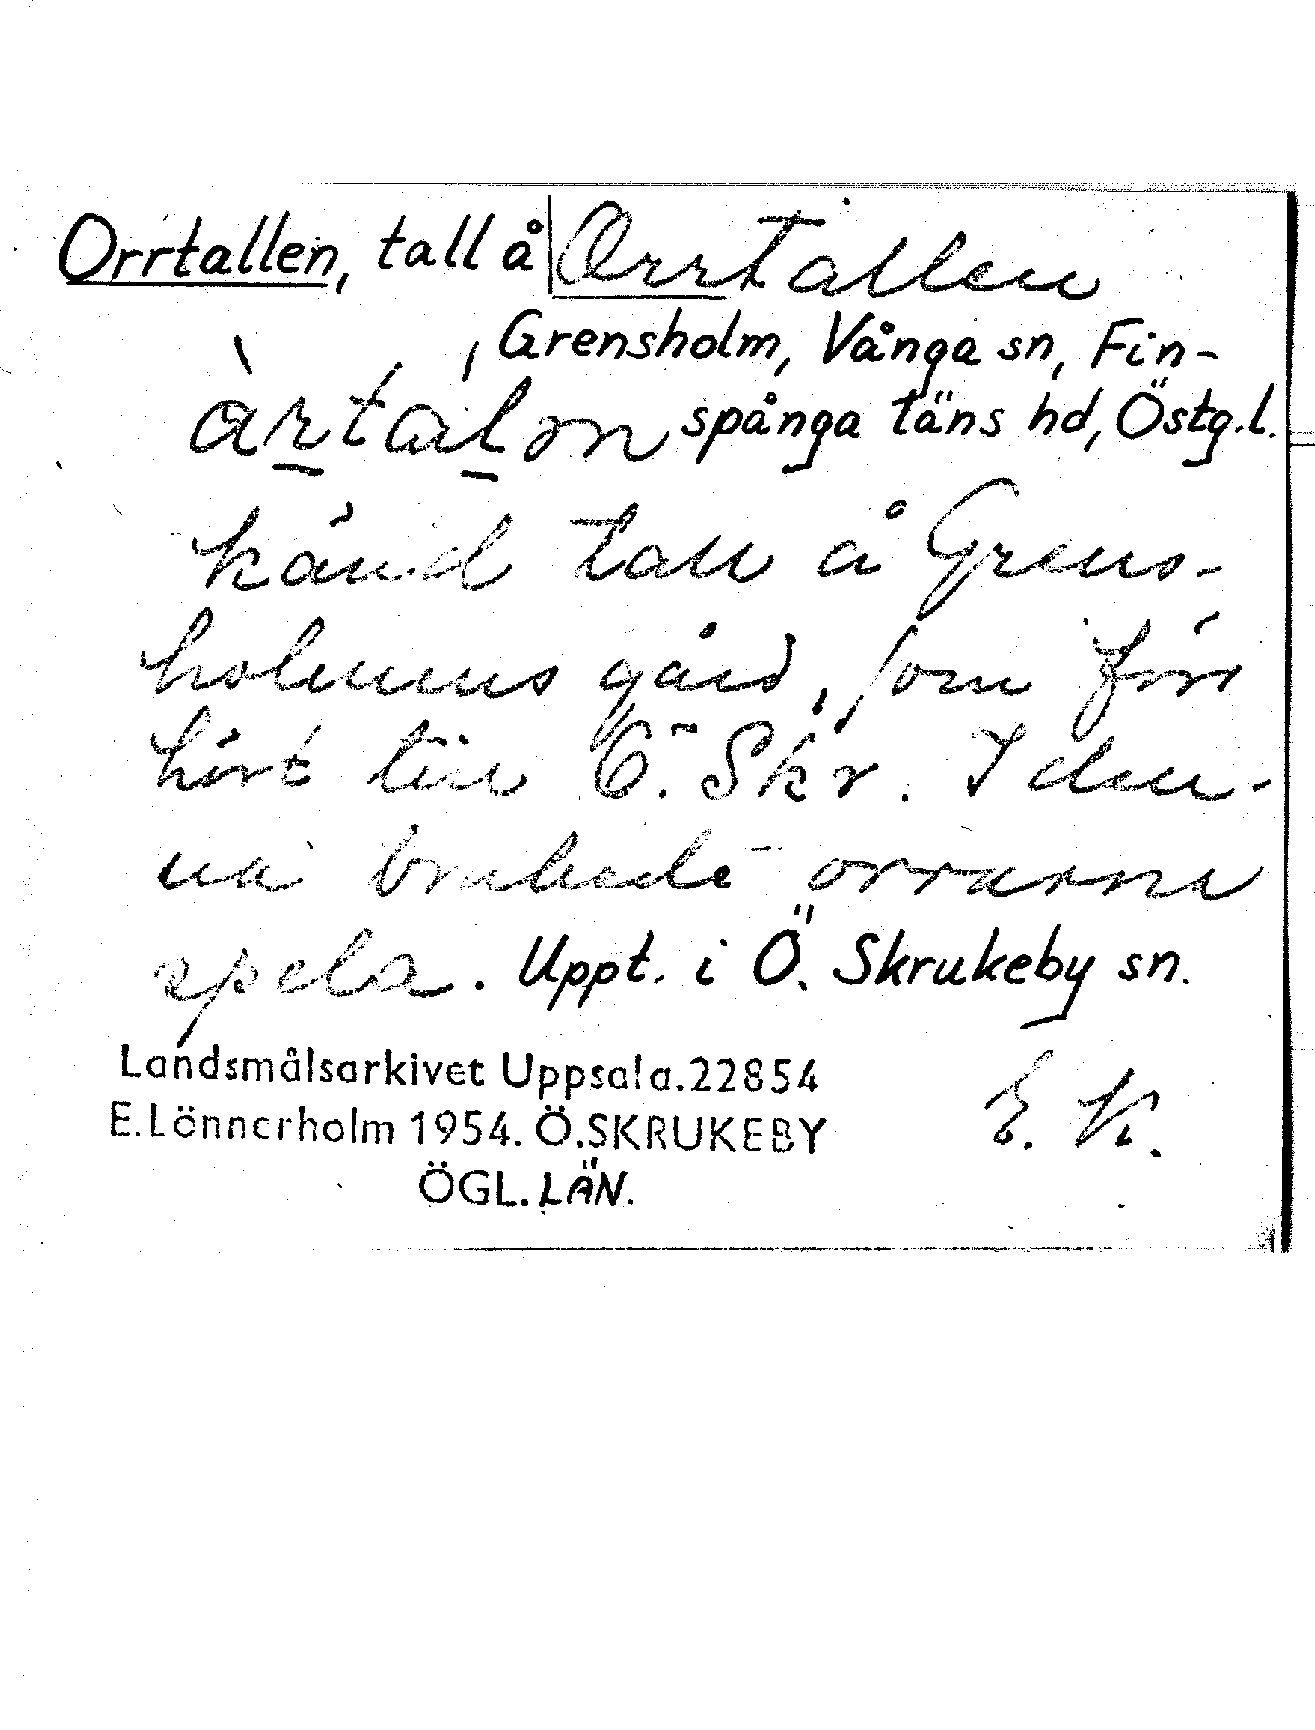 Orrtallen, tall å Orrtallen
Grensholm, Vånga sn, Fin-
spånga läns hd, Östg.l.
känd tall å Grens-
holmens gård, som förr
hört till Ö. Skr. I den-
na brukade orrarna
spela. Uppt. i Ö. Skrukeby sn.
Landsmålsarkivet Uppsala.22854
E.Lönnerholm 1954. Ö.SKRUKEBY
ÖGL.LÄN.
E. K.